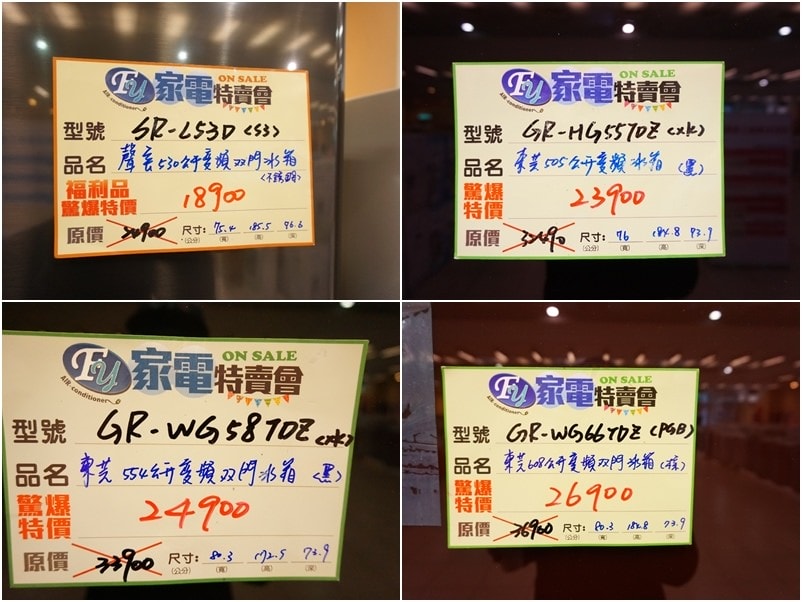 FY 家電特賣會 ON SALE
Air-conditioner
型號 SR-L53D (S3)
品名 聲宝530公升變頻双門冰箱
(不銹鋼)
福利品
驚爆特價 18900
原價 尺寸: 75.4 185.5
(公分) (寬) (高) (深)
FY 家電特賣會 ON SALE
Air-conditioner
型號 GR-HG55TDZ (XK)
品名 東芝505公升變頻冰箱 (黑)
驚爆
特價 23900
原價 尺寸: 76 184.8
(公分) (寬) (高) (深)
FY 家電特賣會 ON SALE
Air-conditioner
型號 GR-WG58TDZ (XK)
品名 東芝554公升變頻双門冰箱 (黑)
驚爆
特價 24900
原價 33900 尺寸: 80.3 172.5 73.9
(公分) (寬) (高) (深)
FY 家電特賣會 ON SALE
Air-conditioner
型號 GR-WG66TDZ (PGB)
品名 東芝608公升變頻双門冰箱
驚爆
特價 26900
原價 36900 尺寸: 80.3 184.8 73.9
(公分) (寬) (高) (深)